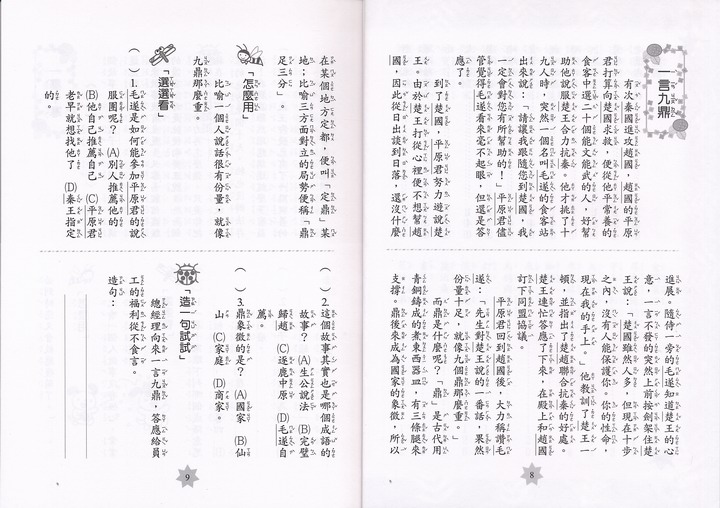 一言九鼎
有次秦國進攻趙國，趙國的平原
君打算向楚國求救，便從他平常養的
食客中選二十個能文能武的人，好幫
助他說服楚王合力抗秦。他才挑了十
九人時，突然一個名叫毛遂的食客站
出來說：「請讓我跟隨您到楚國，我
一定會對您有所幫助的！」平原君儘
管覺得毛遂看來毫不起眼，但還是答
應了。
到了楚國，平原君努力遊說楚
王。由於楚王打從心裡便不想幫趙
國，因此從日出談到日落，還沒什麼
進展。隨侍一旁的毛遂知道楚王的心
意，一言不發的突然上前按劍架住楚
王說：「楚國雖然人多，但現在十步
之內，沒有人能保護你。你的性命，
現在我的手上。」他教訓了楚王一
頓，並指出了楚趙聯合抗秦的好處。
楚王連忙答應了下來，在殿上和趙國
訂下同盟協議。
平原君回到趙國後，大力稱讚毛
遂：「先生對楚王說的一番話，果然
份量十足，就像九個鼎那麼重。」
而鼎是什麼呢？「鼎」是古代用
青銅鑄成的煮東西器皿，有三條腿來
支撐。鼎後來成為國家的象徵，所以
8
在某個地方定都，便叫「定鼎」某
地；比喻三方面對立的局勢便稱「鼎
足三分」。
「怎麼用」
比喻一個人說話很有份量，就像
九鼎那麼重。
「選選看」
( ) 1.毛遂是如何能參加平原君的說
服團呢？ (A)別人推薦他的
(B)他自己推薦自己 (C)平原君
老早就想找他了 (D)秦王指定
的。
( ) 2.這個故事其實也是哪個成語的
故事？ (A)生公說法 (B)完璧
歸趙 (C)逐鹿中原 (D)毛遂自
薦。
( ) 3.鼎象徵的是？ (A)國家 (B)仙
山 (C)家庭 (D)商家。
「造一句試試」
總經理向來一言九鼎，答應給員
工的福利從不食言。
造句：
9